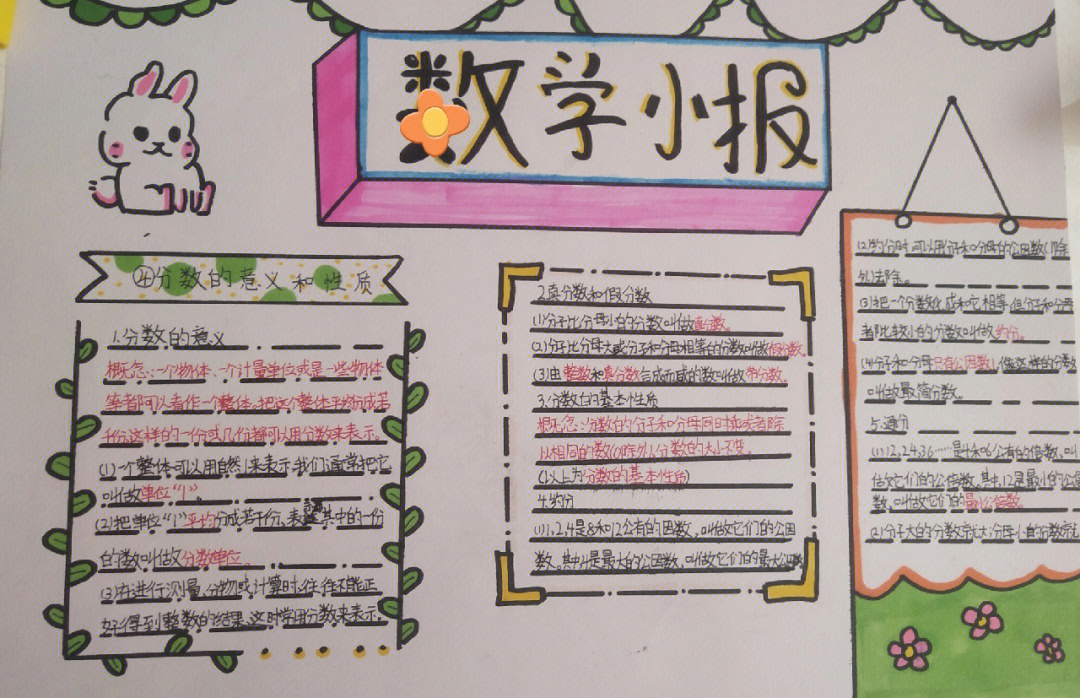 数学小报
④分数的意义和性质
1.分数的意义
概念:一个物体、一个计量单位或是一些物体
等都可以看作一个整体。把这个整体平均分成若
干份,这样的一份或几份都可以用分数来表示。
(1)一个整体可以用自然1来表示,我们通常把它
叫做单位“1”。
(2)把单位“1”平均分成若干份、表 其中的一份
的数叫做分数单位。
(3)在进行测量、分物或计算时,往往不能正
好得到整数的结果、这时常用分数来表示。
2.真分数和假分数
(1)分子比分母小的分数叫做真分数。
(2)分子比分母大或分子和分母相等的分数叫做假分数。
(3)由整数和真分数合成而成的数叫做带分数。
3.分数的基本性质
概念:分数的分子和分母同时乘或者除
以相同的数(0除外),分数的大小不变。
(以上为分数的基本性质)
4.约分
(1)1,2,4是8和12公有的因数,叫做它们的公因
数。其中4是最大的公因数,叫做它们的最大公因数
(2)约分时,可以用分子和分母的公因数(1除
外)去除。
(3)把一个分数化成和它相等,但分子和分母
都比较小的分数叫做约分。
(4)分子和分母只有公因数1,像这样的分数
叫做最简分数。
5.通分
(1)12,24,36……是4和6公有的倍数,叫
做它们的公倍数。其中,12是最小的公倍
数,叫做它们的最小公倍数。
(2)分子大的分数就大;分母小的分数就